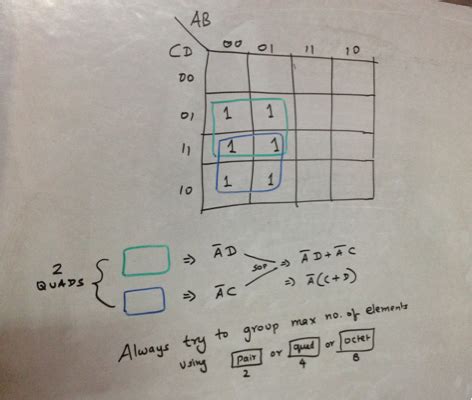 AB
CD 00 01 11 10
00
01 1 1
11 1 1
10 1 1
2 QUADS
⇒ A̅D
SOP ⇒ A̅D + A̅C
⇒ A̅C
⇒ A̅(C+D)
Always try to group max no. of elements
using pair or quad or octet
2 4 8